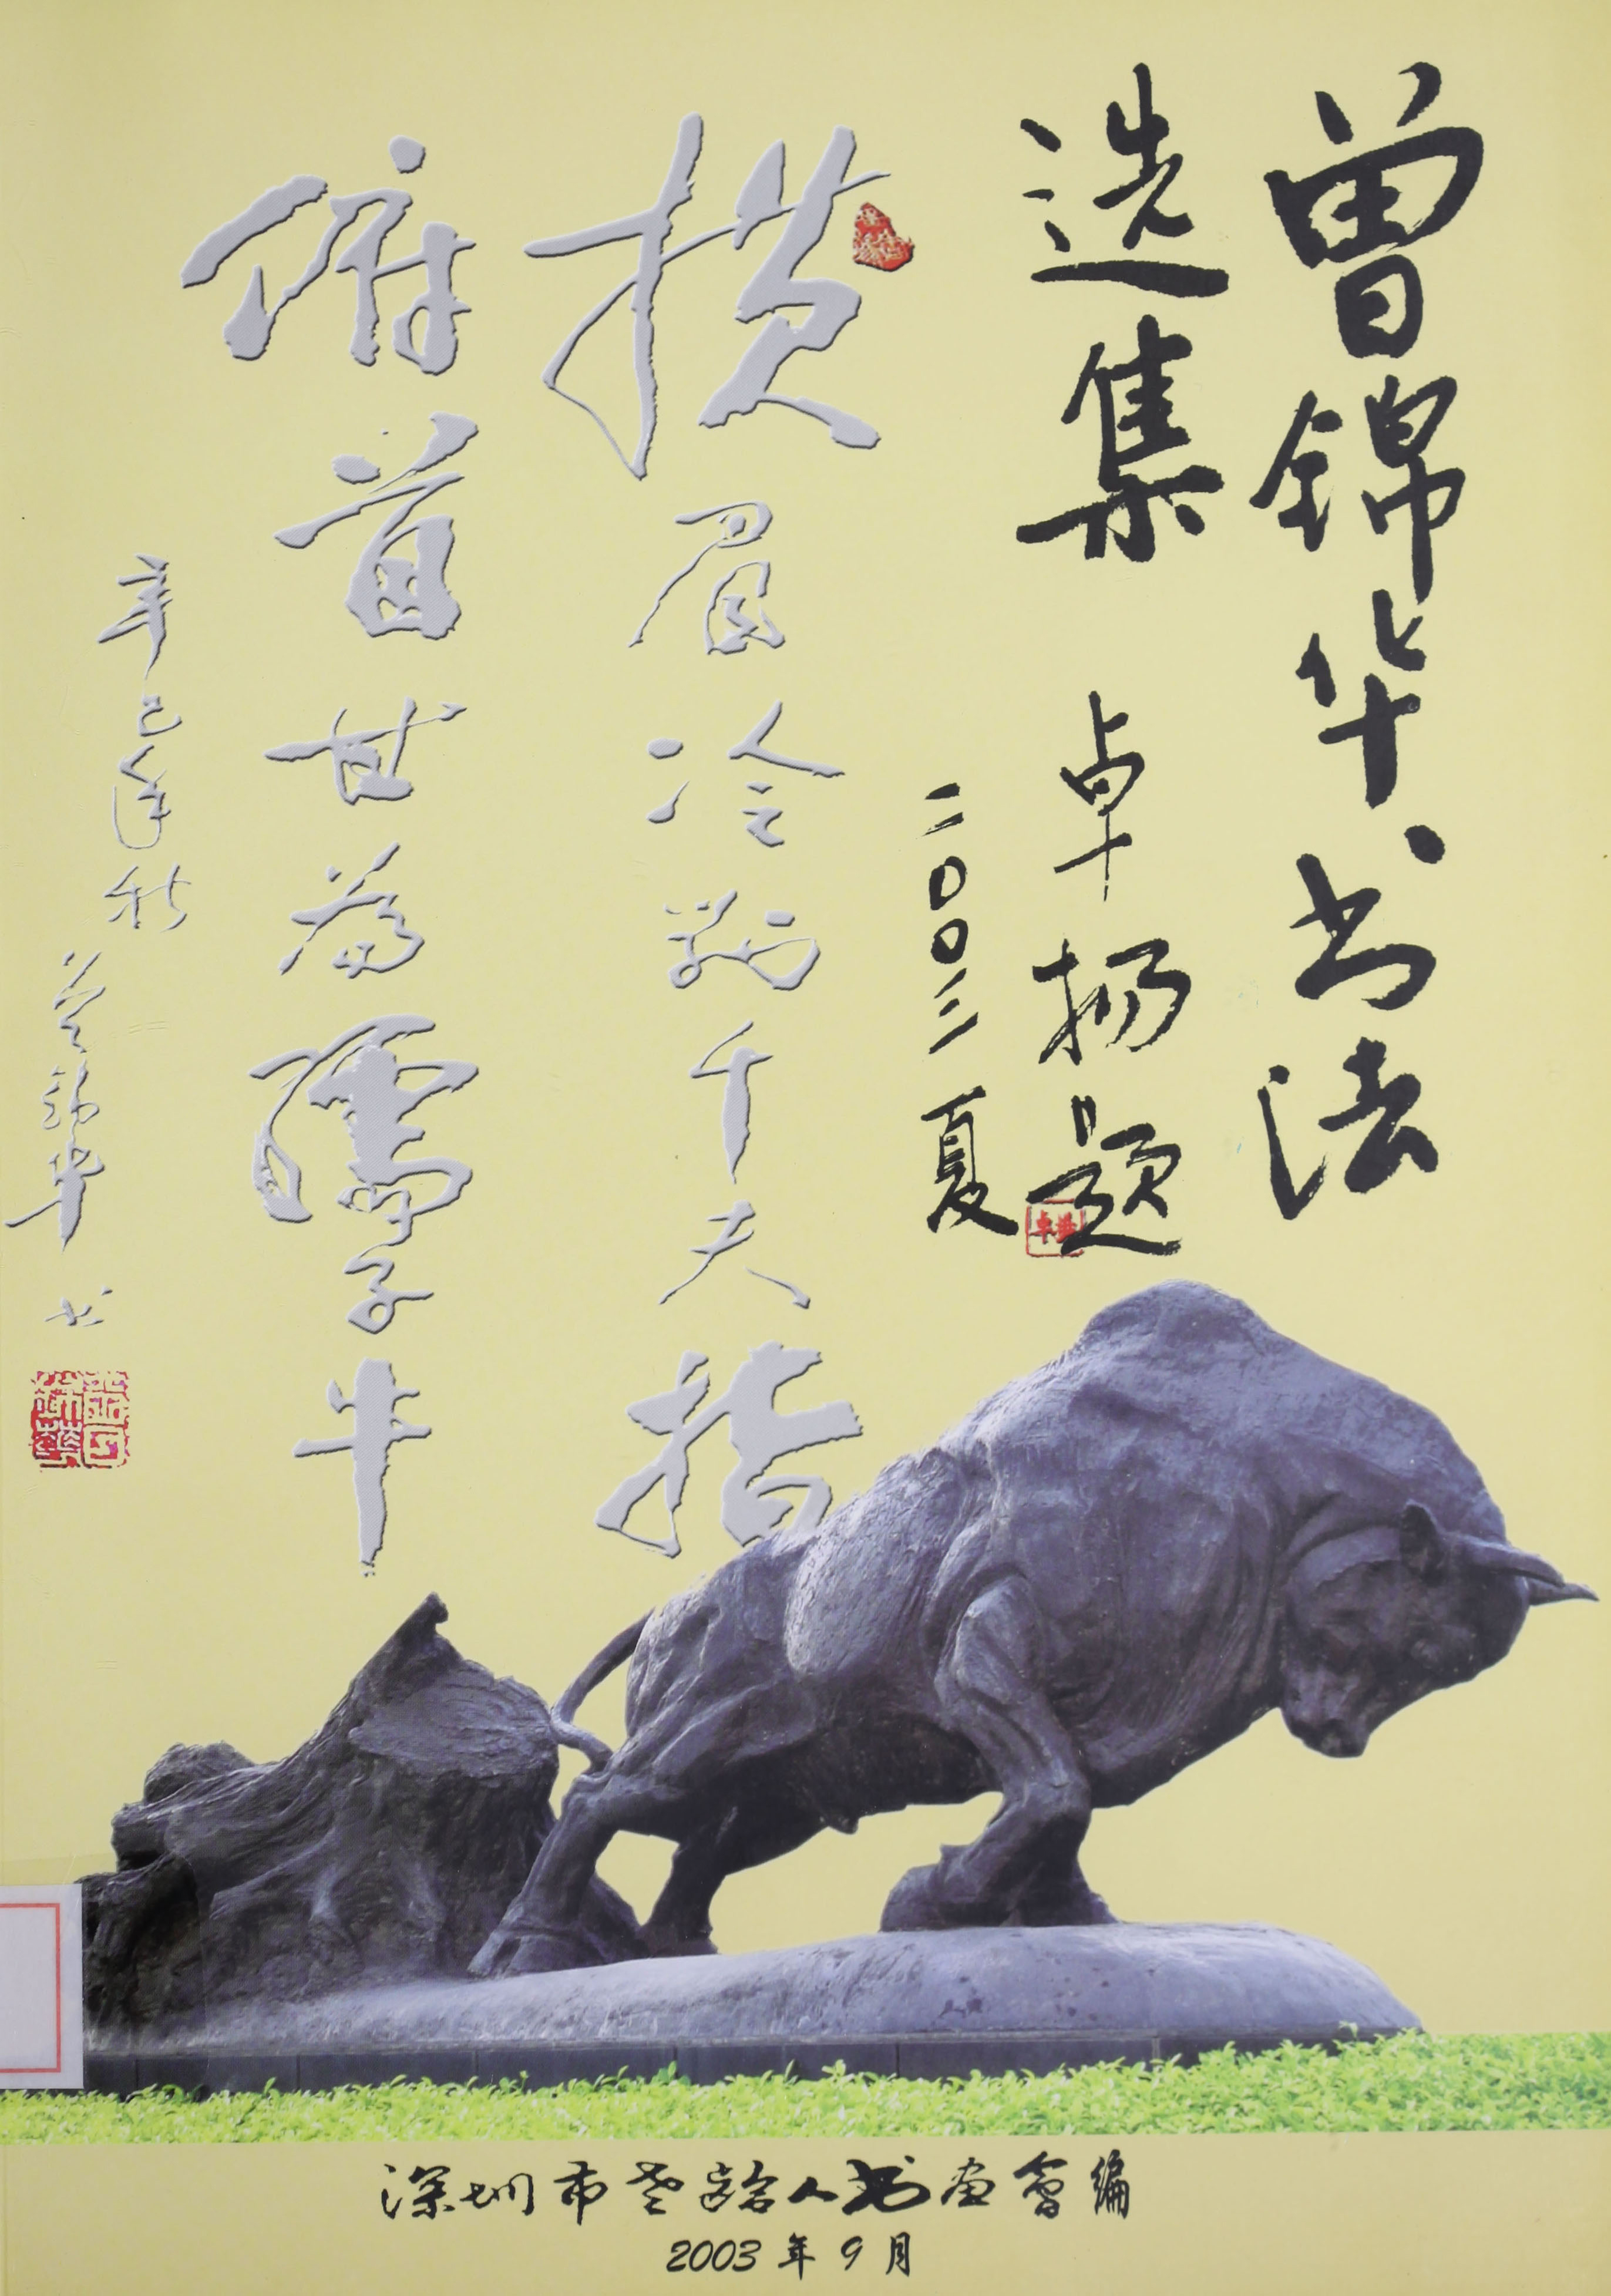 曾锦华书法
选集 卓扬题
二〇〇三夏
横眉冷对千夫指
俯首甘为孺子牛
辛巳年秋
曾锦华书
深圳市老龄人书画会编
2003年9月